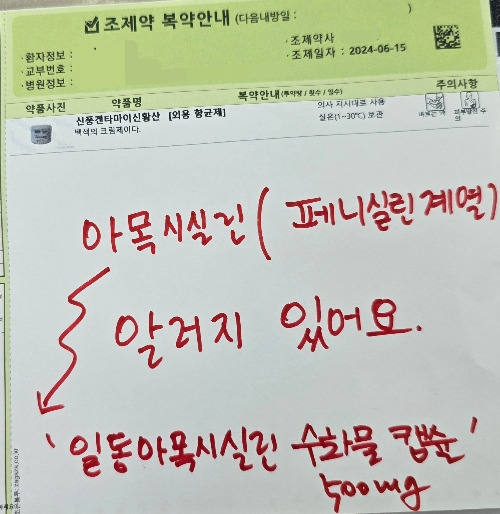 조제약 복약안내 (다음내방일 : )
·환자정보 :
·교부번호 :
·병원정보 :
·조제약사
·조제일자 : 2024-06-15
약품사진 약품명 복약안내 (투약량 / 횟수 / 일수) 주의사항
신풍겐타마이신황산 [외용 항균제] 의사 지시대로 사용
백색의 크림제이다. 실온(1~30℃) 보관
아목시실린 (페니실린 계열)
알러지 있어요.
'일동아목시실린 수화물 캡슐'
500mg